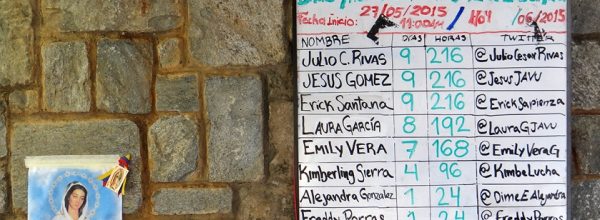 Fecha Inicio: 27/05/2015 / Hoy /06/2015
11:00am
NOMBRE DÍAS HORAS TWITTER
JULIO C. RIVAS 9 216 @JulioCesarRivas
JESUS GOMEZ 9 216 @JesusJAVU
Erick Santana 9 216 @ErickSapienza
LAURA GARCÍA 8 192 @LauraGJAVU
EMILY VERA 7 168 @EmilyVeraG
Kimberling Sierra 4 96 @KimbaLucha
Alejandra Gonzalez 1 24 @Dime.E.Alejandra
Freddy Porras 1 24 @Freddy Porras